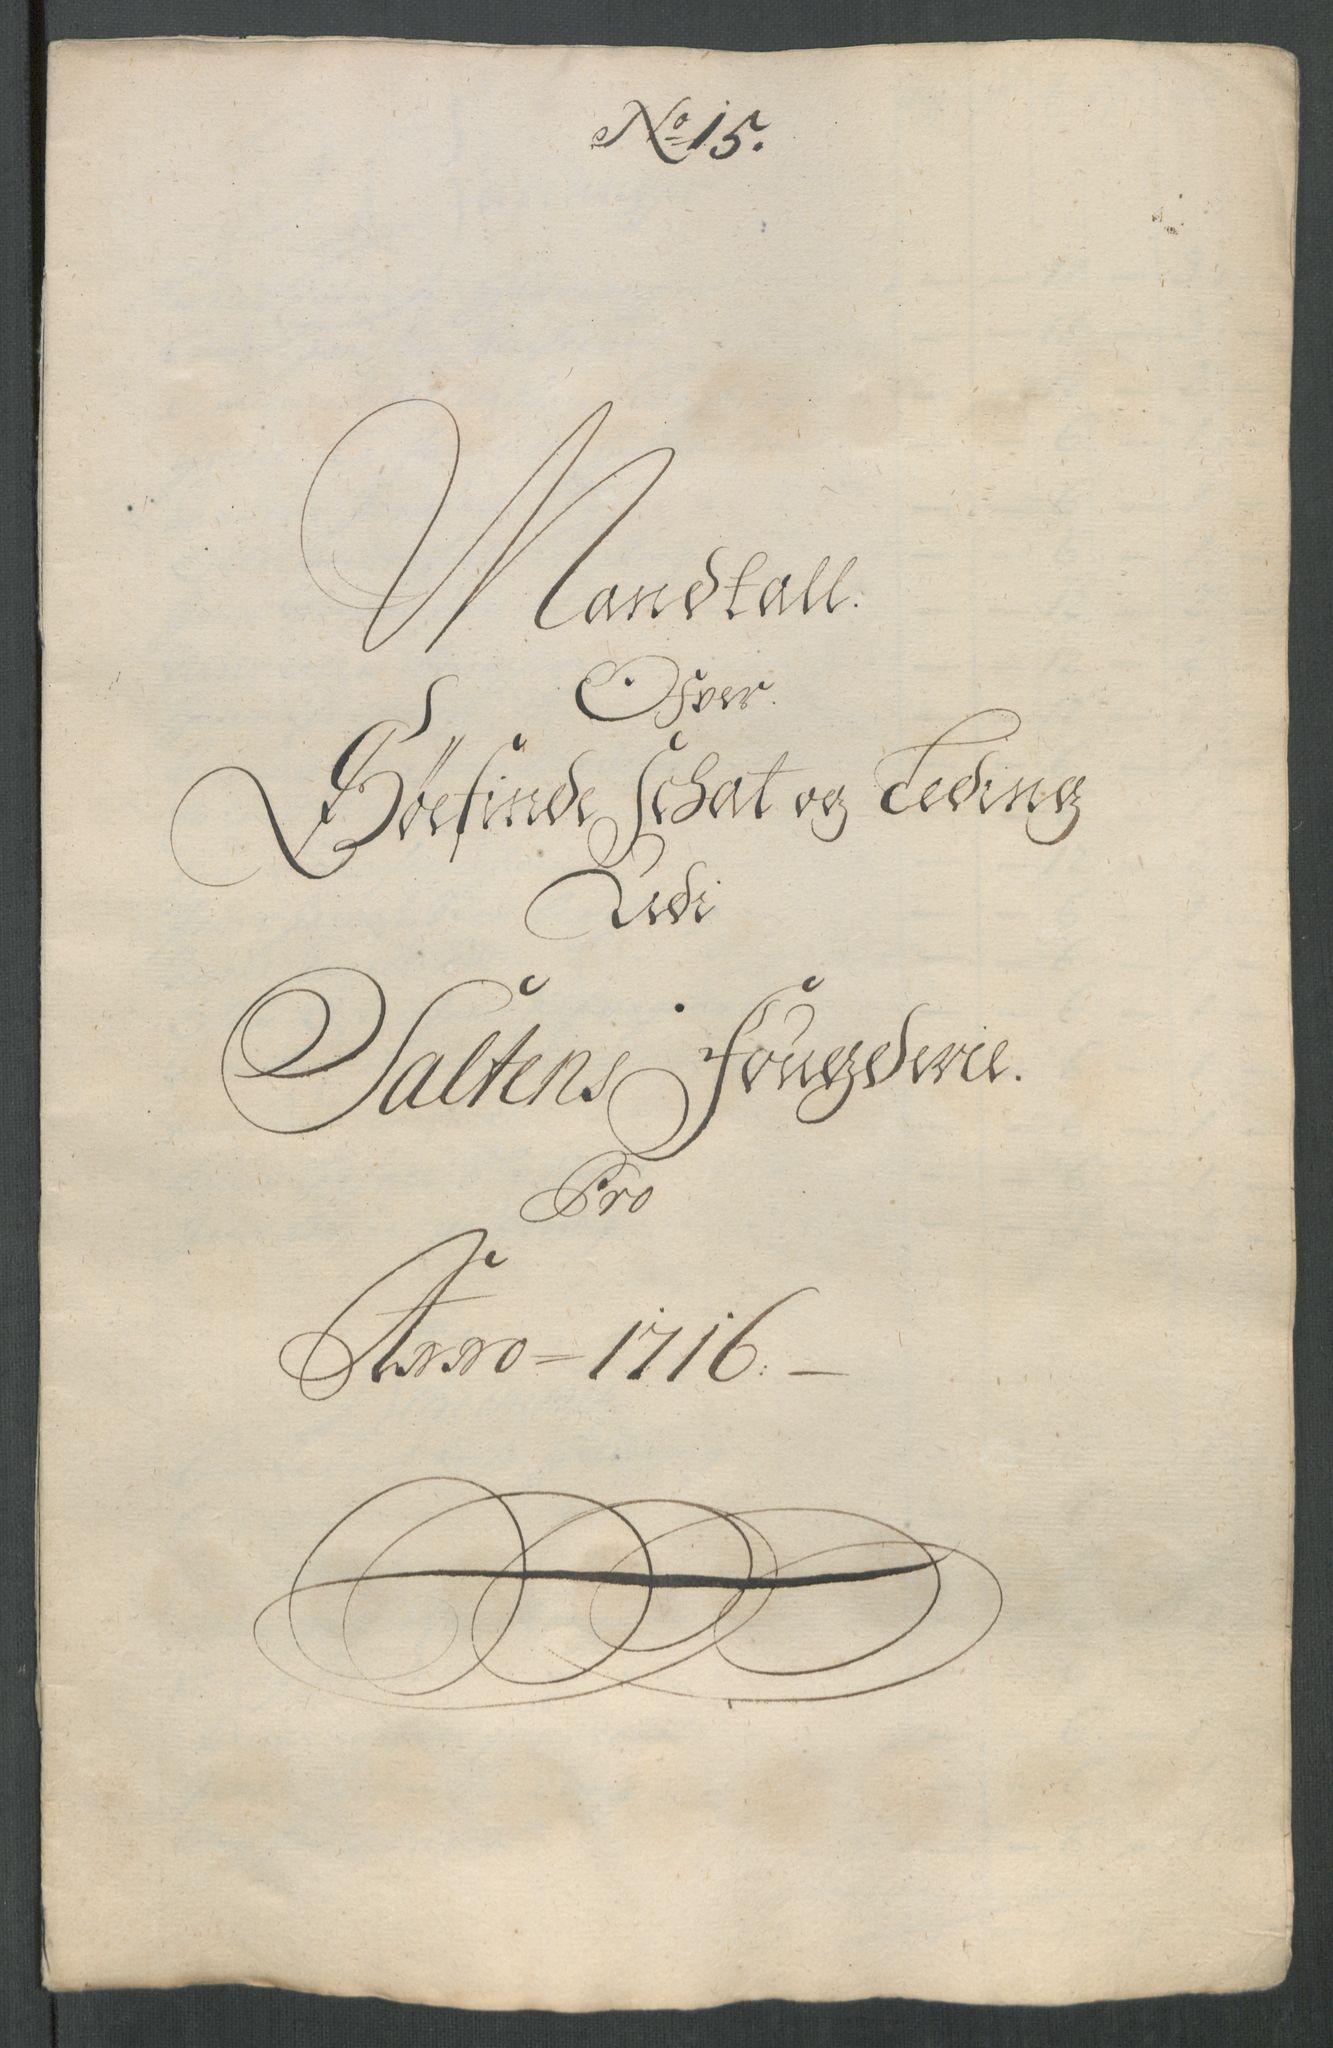 No 15.
Mandtall.
Ofver
Böefinde Schat og Leding
Udi
Saltens Fougderie.
Pro
Anno = 1716. —